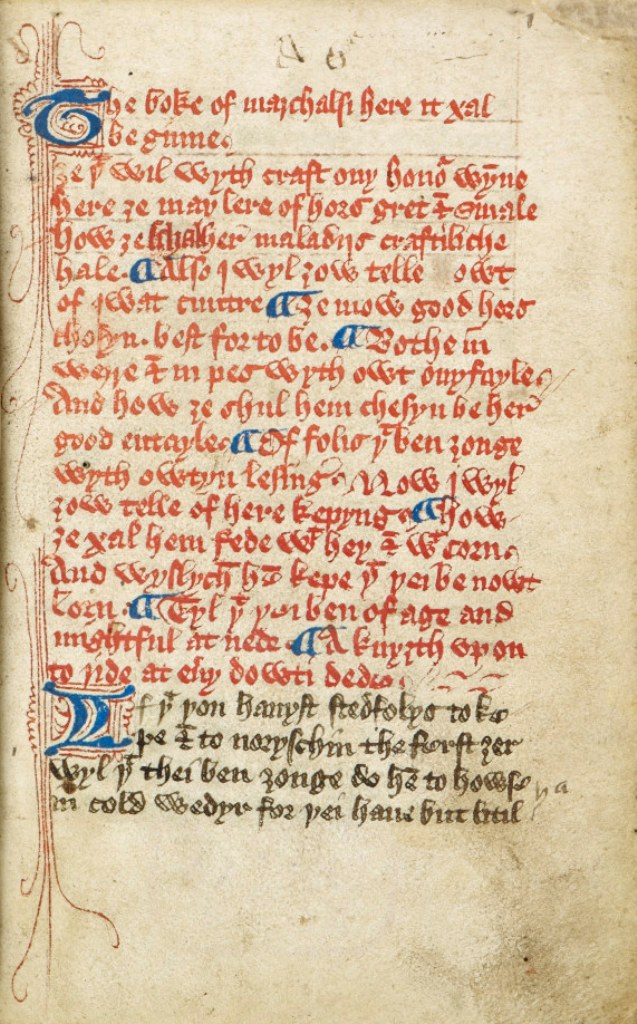 The boke of marchalsi here it xal
begynne.
ȝe þt wil wyth craft ony honor wynne
here ȝe may lere of hors gret & smale
how ȝe schal her maladijs craftibliche
hale. ¶ Also j wyl ȝow telle owt
of qwat cuntre ¶ ȝe mow good hors
chosyn. best for to be. ¶ Bothe in
werre & in pes wyth owt ony fayle.
And how ȝe shul hem chesyn be her
good entayle. ¶ Of folis þt ben ȝonge
wyth owtyn lesing. Now j wyl
ȝow telle of here kepyng. ¶ how
ȝe xal hem fede wt hey & wt corn.
And wyslych hē kepe þt þei be nowt
lorn. ¶ Tyl þt þei ben of age and
mightful at nede. ¶ A knyȝth vpon
to ride at eny dowti dede.
If þt þou hauyst stedfolys to ke
pe & to noryschin the ferst ȝer
wyl þt thei ben ȝonge do hē to howse
in cold wedyr for þei haue but litil